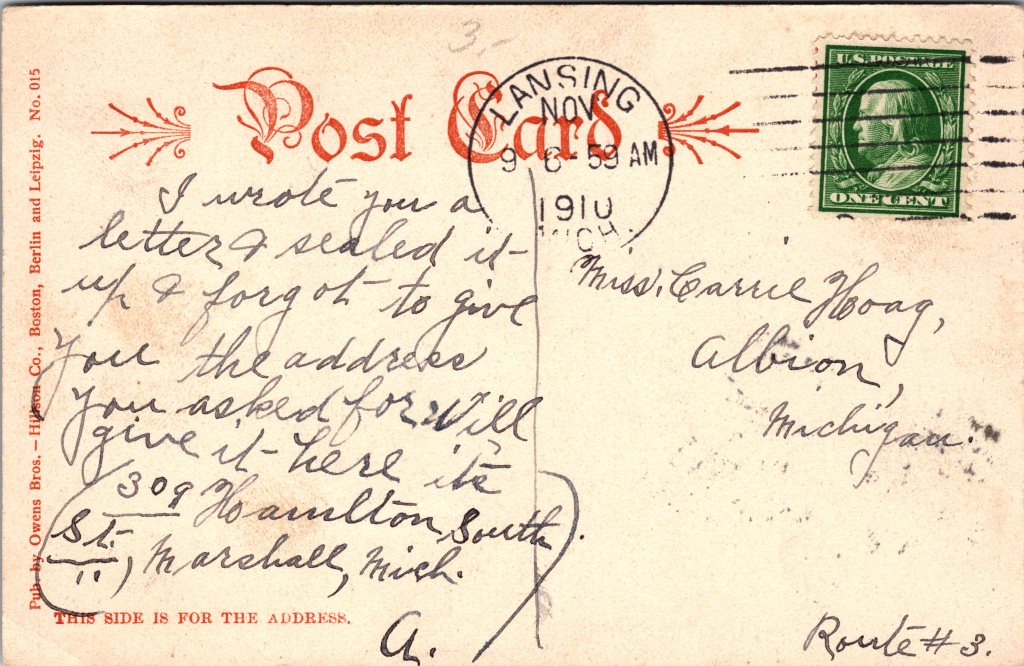 3.-
Post Card
LANSING
NOV
9 6-59 AM
1910
MICH.
U.S. POSTAGE
ONE CENT
Pub. by Owens Bros. – Hillson Co., Boston, Berlin and Leipzig. No. 015
I wrote you a
letter & sealed it
up & forgot to give
you the address
you asked for will
give it here its
309 Hamilton South
St., Marshall, Mich.
A.
THIS SIDE IS FOR THE ADDRESS.
Miss. Carrie Hoag,
Albion,
Michigan.
Route #3.